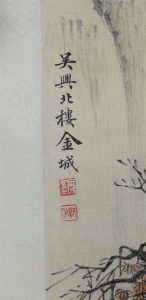 吳興北樓金城